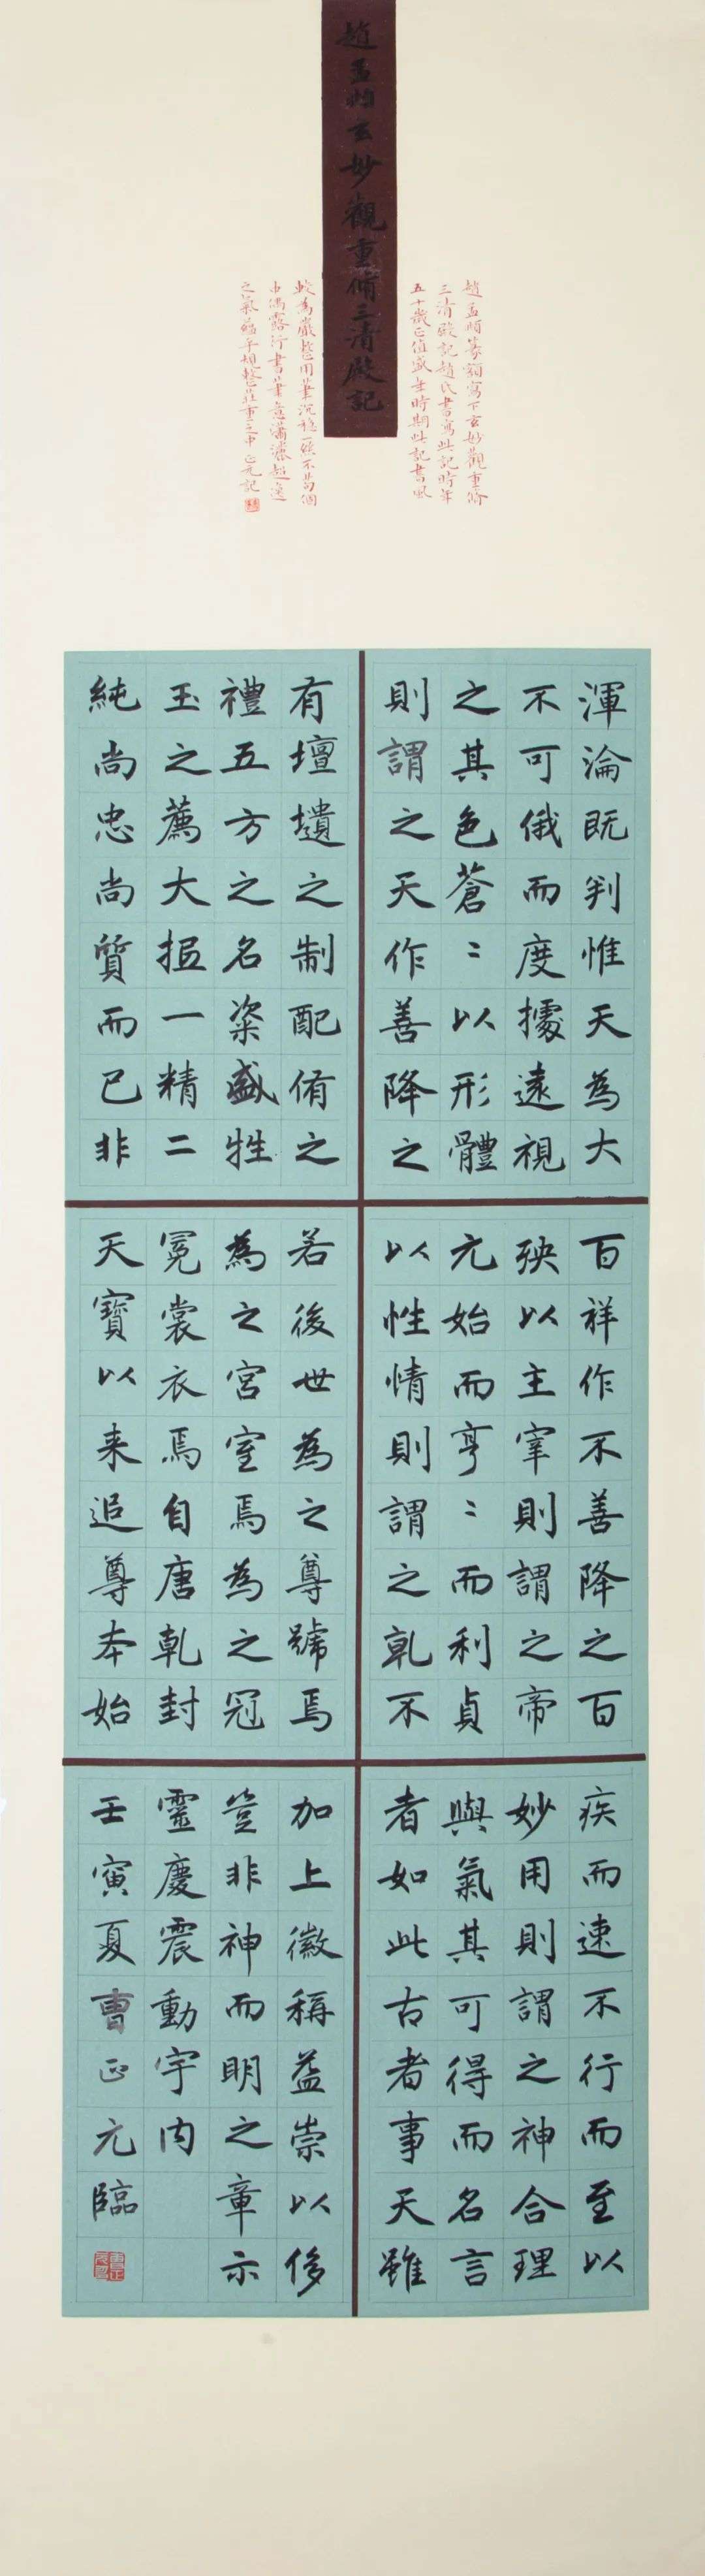 趙孟頫玄妙觀重脩三清殿記
趙孟頫篆額寫下玄妙觀重脩
三清殿記趙氏書寫此記時年
五十歲正值盛年時期此記書風
較為嚴整用筆沉穩一絲不苟個
中偶露行書筆意瀟灑超逸
之氣蘊于規整莊重之中 正元記
渾淪既判惟天為大
不可俄而度據遠視
之其色蒼〻以形體
則謂之天作善降之
百祥作不善降之百
殃以主宰則謂之帝
元始而亨〻而利貞
以性情則謂之乹不
疾而速不行而至以
妙用則謂之神合理
與氣其可得而名言
者如此古者事天雖
有壇壝之制配侑之
禮五方之名粢盛牲
玉之薦大抵一精二
純尚忠尚質而已非
若後世為之尊號焉
為之宮室焉為之冠
冕裳衣焉自唐乹封
天寶以来追尊本始
加上徽稱益崇以侈
豈非神而明之章示
靈慶震動宇内
壬寅夏曹正元臨